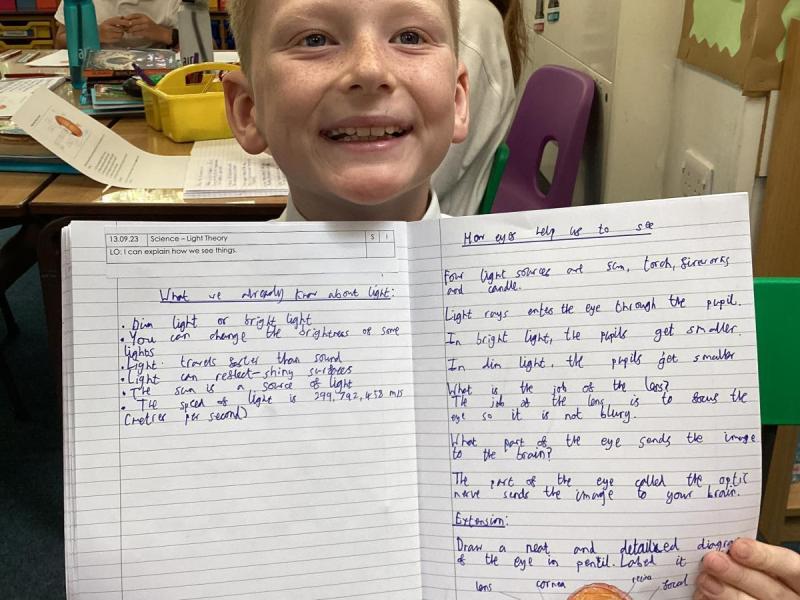 13.09.23 Science – Light Theory S I
LO: I can explain how we see things.
What we already know about light:
• Dim light or bright light
• You can change the brightness of some
lights
• Light travels faster than sound
• Light can reflect - shiny surfaces
• The sun is a source of light
• The speed of light is 299,792,458 m/s
(metres per second)
How eyes help us to see
Four light sources are sun, torch, fireworks
and candle.
Light rays enters the eye through the pupil.
In bright light, the pupils get smaller.
In dim light, the pupils get smaller
What is the job of the lens?
The job of the lens is to focus the
eye so it is not blurry.
What part of the eye sends the image
to the brain?
The part of the eye called the optic
nerve sends the image to your brain.
Extension:
Draw a neat and detailed diagra
of the eye in pencil. Label it
lens cornea